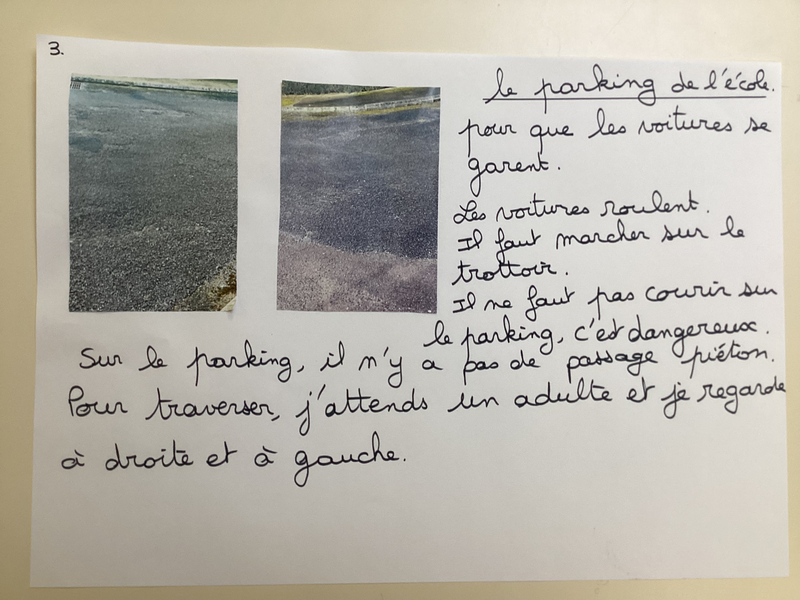 3.
le parking de l'école.
pour que les voitures se
garent.
Les voitures roulent.
Il faut marcher sur le
trottoir.
Il ne faut pas courir sur
le parking, c'est dangereux.
Sur le parking, il n'y a pas de passage piéton.
Pour traverser, j'attends un adulte et je regarde
à droite et à gauche.